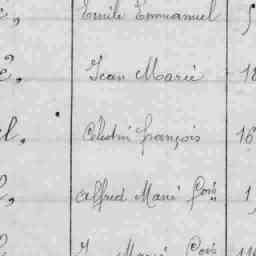 Emile Emmanuel
é, Jean Marie 18
l, Célestin françois 16
Alfred Marie fçois 1
Marie fçois